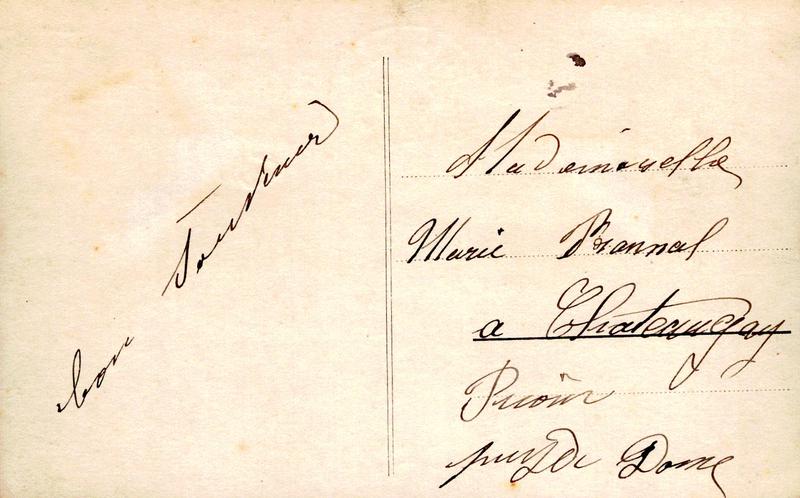 bon Souvenir
Mademoiselle
Marie Bonnal
a Chateaugay
Puy de Dome